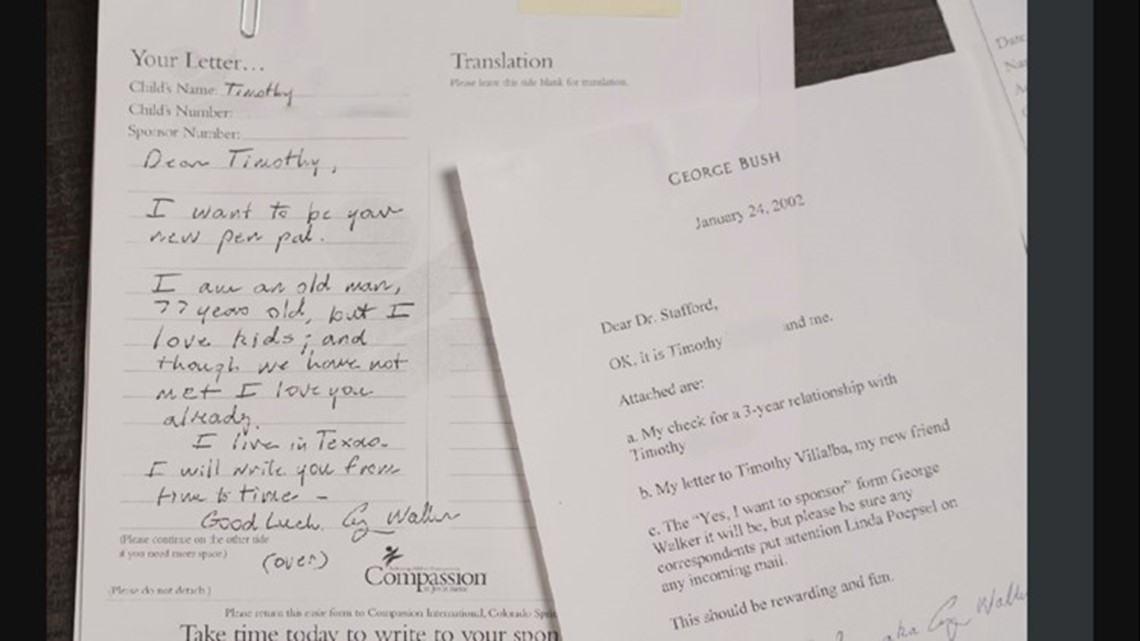 Your Letter...
Child's Name: Timothy
Child's Number:
Sponsor Number:
Dear Timothy,
I want to be your
new pen pal.
I am an old man,
77 years old, but I
love kids; and
though we have not
met I love you
already.
I live in Texas.
I will write you from
time to time –
Good Luck. G. Walker
(Please continue on the other side
if you need more space.)
(over)
(Please do not detach.)
Compassion
Please return this entire form to Compassion International, Colorado
Take time today to write to your
Translation
Please leave this side blank for translation.
GEORGE BUSH
January 24, 2002
Dear Dr. Stafford,
OK, it is Timothy and me.
Attached are:
a. My check for a 3-year relationship with
Timothy
b. My letter to Timothy Villalba, my new friend
c. The "Yes, I want to sponsor" form George
Walker it will be, but please be sure any
correspondents put attention Linda Poepsel on
any incoming mail.
This should be rewarding and fun.
aka G. Walker
Date